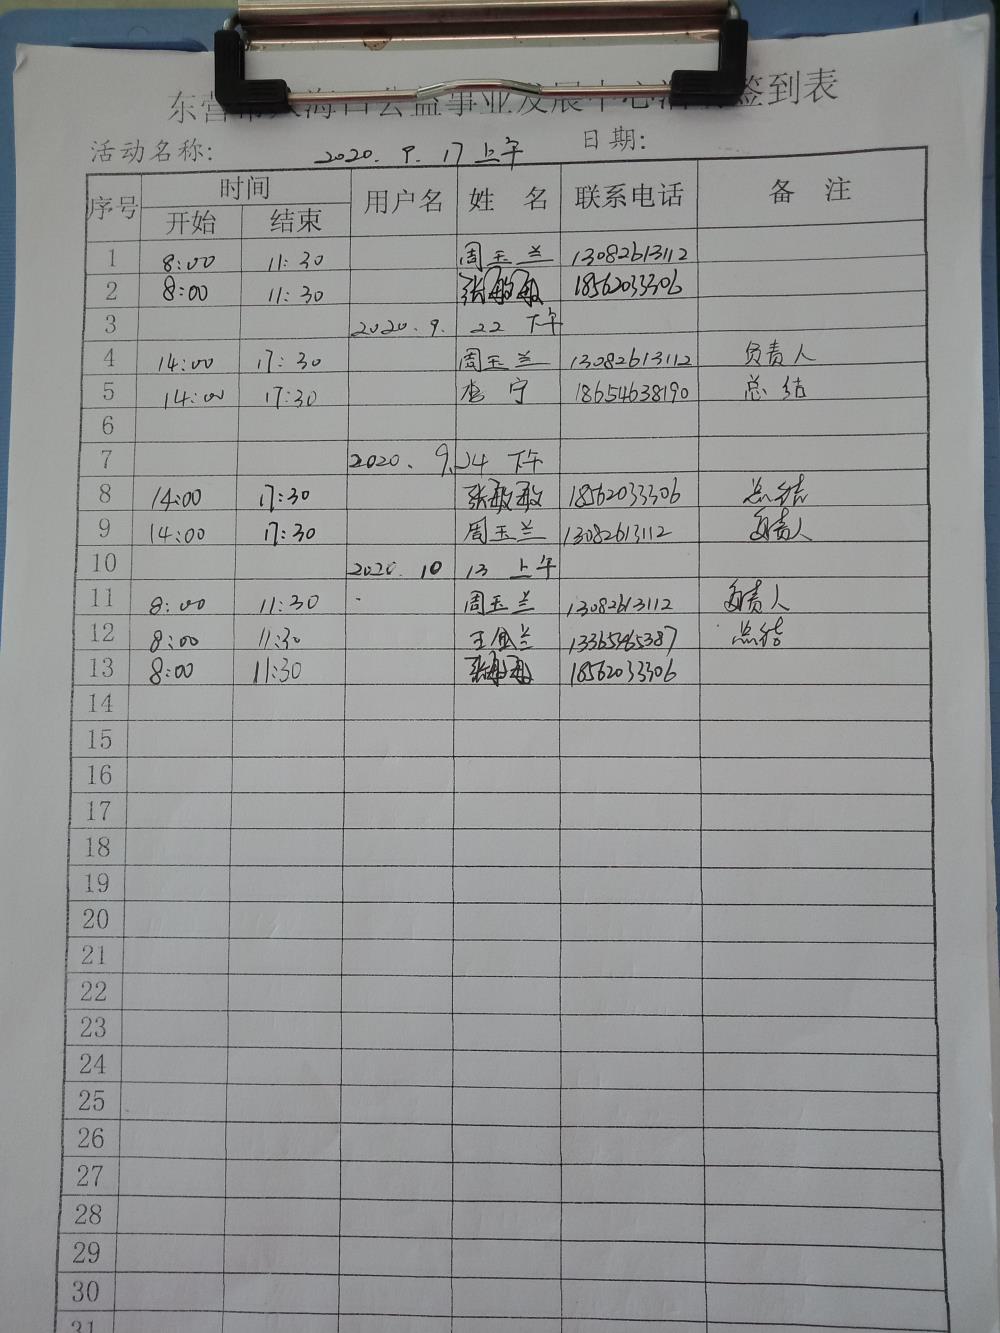 东营 海 公益事业发展中心活 签到表
活动名称: 2020. 9. 17 上午 日期:
序号 时间 用户名 姓 名 联系电话 备 注
开始 结束
1 8:00 11:30 周玉兰 13082613112
2 8:00 11:30 张敏敏 18562033306
3 2020. 9. 22 下午
4 14:00 17:30 周玉兰 13082613112 负责人
5 14:00 17:30 宁 18654638190 总结
6
7 2020. 9. 24 下午
8 14:00 17:30 张敏敏 18562033306 总结
9 14:00 17:30 周玉兰 13082613112 负责人
10 2020. 10 13 上午
11 8:00 11:30 周玉兰 13082613112 负责人
12 8:00 11:30 王金兰 13365465387 总结
13 8:00 11:30 张敏敏 18562033306
14
15
16
17
18
19
20
21
22
23
24
25
26
27
28
29
30
31